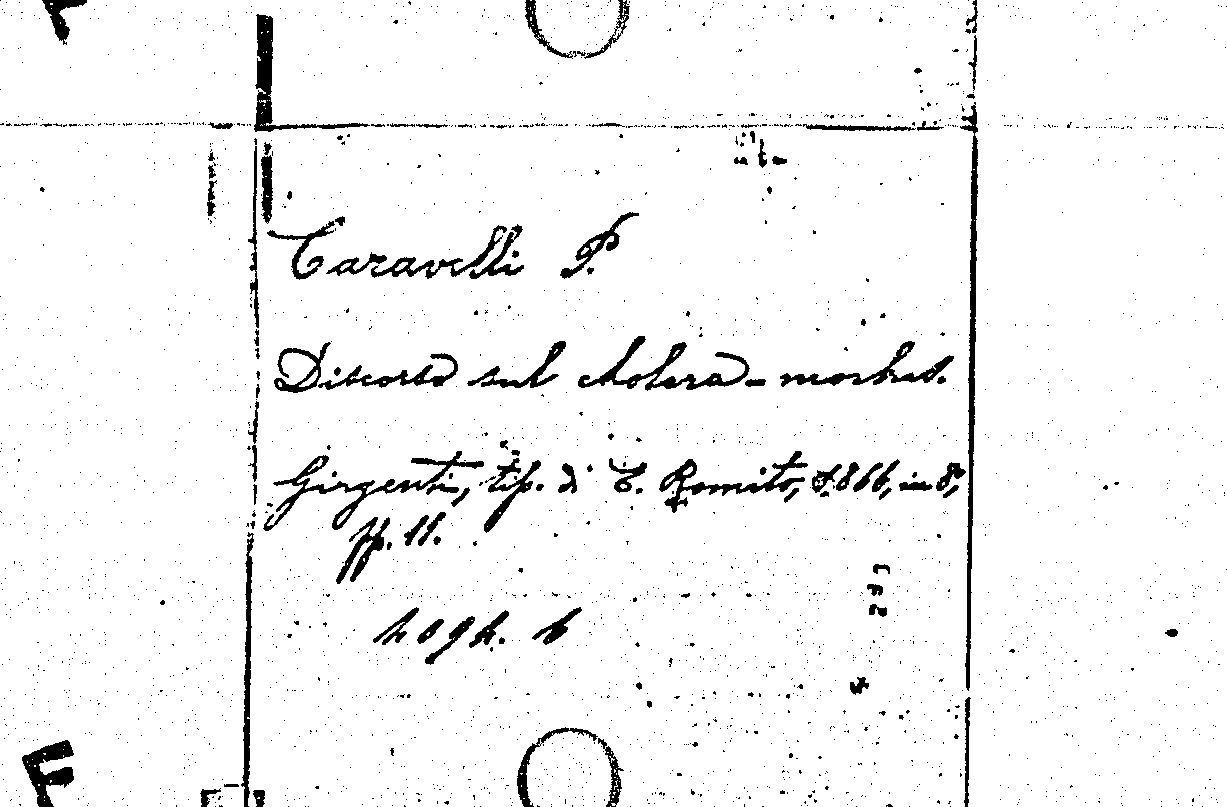 Caravelli P.
Discorso sul cholera-morbus.
Girgenti, tip. di E. Romito, 1866, in 8°,
pp. 11.